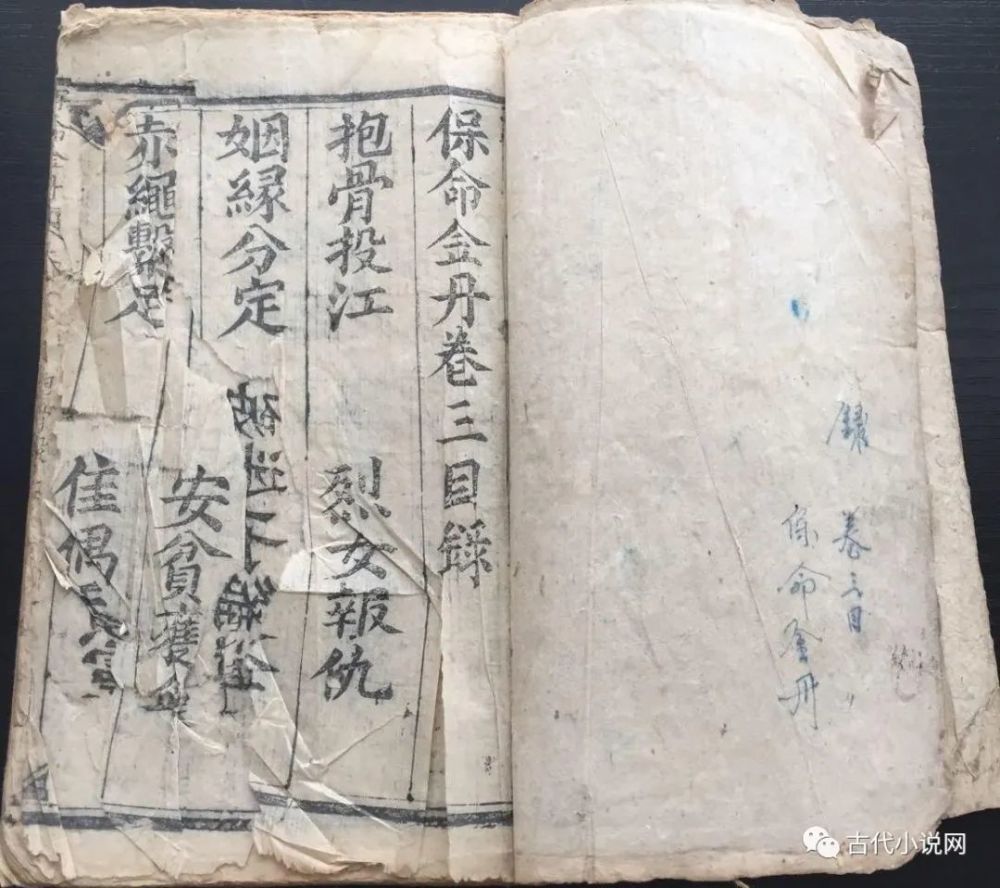 録 卷三目
保命金丹
保命金丹卷三目錄
抱骨投江 烈女報仇
姻緣分定
安貧獲
赤繩繫足
佳偶
古代小说网